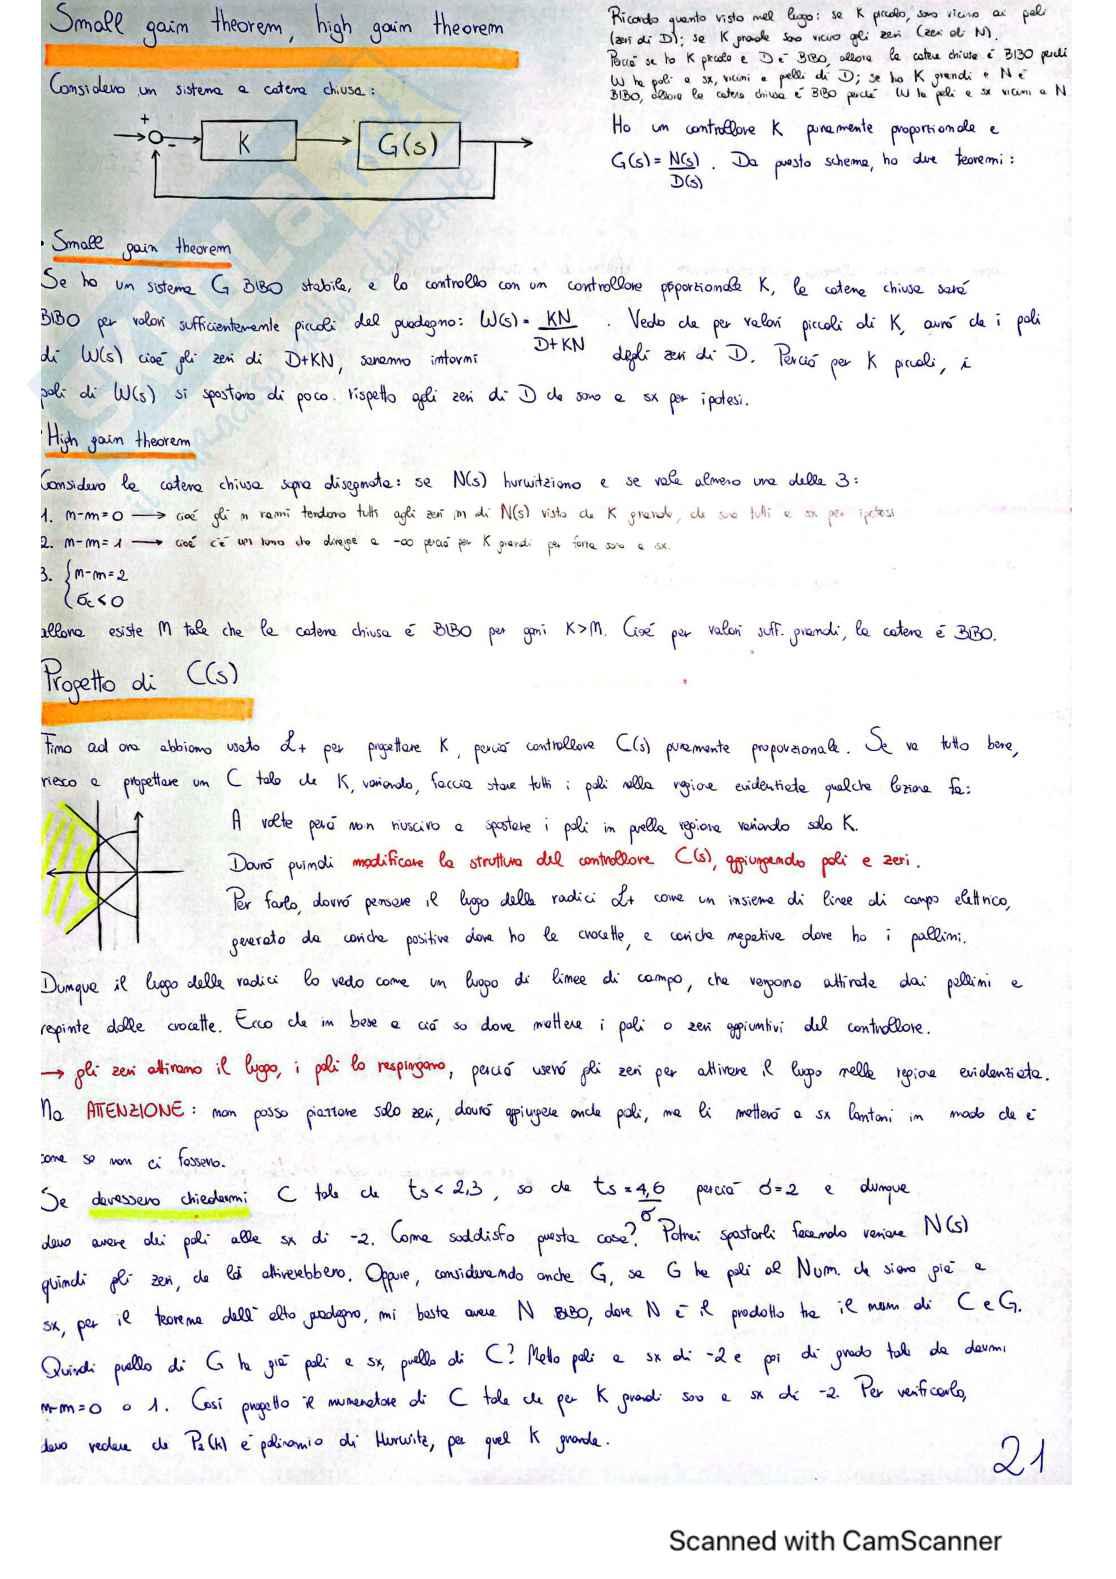 Small gain theorem, high gain theorem
Considero un sistema a catena chiusa:
+
-
K
G(s)
Ricordo quanto visto nel luogo: se K piccolo, sono vicino ai poli
(zeri di D); se K grande sono vicino agli zeri (zeri di N).
Perciò se ho K piccolo e D è BIBO, allora la catena chiusa è BIBO perché
W ha poli a sx, vicini a quelli di D; se ho K grandi e N è
BIBO, allora la catena chiusa è BIBO perché W ha poli a sx vicini a N
Ho un controllore K puramente proporzionale e
G(s) = N(s)/D(s). Da questo schema, ho due teoremi:
· Small gain theorem
Se ho un sistema G BIBO stabile, e lo controllo con un controllore proporzionale K, la catena chiusa sarà
BIBO per valori sufficientemente piccoli del guadagno: W(s) = KN/D+KN. Vedo che per valori piccoli di K, avrò che i poli
di W(s) cioè gli zeri di D+KN, saranno intorni degli zeri di D. Perciò per K piccoli, i
poli di W(s) si spostano di poco rispetto agli zeri di D che sono a sx per ipotesi.
· High gain theorem
Considero la catena chiusa sopra disegnata: se N(s) hurwitziano e se vale almeno una delle 3:
1. n-m=0 → cioè gli n rami tendono tutti agli zeri m di N(s) visto che K grande, che sono tutti a sx per ipotesi
2. n-m=1 → cioè c'è un ramo che diverge a -∞ perciò per K grandi per forza sono a sx.
3. { n-m=2
σc<0
allora esiste M tale che la catena chiusa è BIBO per ogni K>M. Cioè per valori suff. grandi, la catena è BIBO.
Progetto di C(s)
Fino ad ora abbiamo usato L+ per progettare K, perciò controllore C(s) puramente proporzionale. Se va tutto bene,
riesco a progettare un C tale che K, variando, faccia stare tutti i poli nella regione evidenziata qualche lezione fa:
A volte però non riuscivo a spostare i poli in quella regione variando solo K.
Dovrò quindi modificare la struttura del controllore C(s), aggiungendo poli e zeri.
Per farlo, dovrò pensare il luogo delle radici L+ come un insieme di linee di campo elettrico,
generato da cariche positive dove ho le crocette, e cariche negative dove ho i pallini.
Dunque il luogo delle radici lo vedo come un luogo di linee di campo, che vengono attirate dai pallini e
respinte dalle crocette. Ecco che in base a ciò so dove mettere i poli o zeri aggiuntivi del controllore.
→ gli zeri attirano il luogo, i poli lo respingono, perciò userò gli zeri per attirare il luogo nella regione evidenziata.
Ma ATTENZIONE: non posso piazzare solo zeri, dovrò aggiungere anche poli, ma li metterò a sx lontani in modo che è
come se non ci fossero.
Se dovessero chiedermi C tale che ts < 2,3, so che ts = 4,6/σ perciò σ=2 e dunque
devo avere dei poli alla sx di -2. Come soddisfo questa cosa? Potrei spostarli facendo variare N(s)
quindi gli zeri, che li attirerebbero. Oppure, considerando anche G, se G ha poli al Num. che siano già a
sx, per il teorema dell'alto guadagno, mi basta avere N BIBO, dove N è il prodotto tra il num di C e G.
Quindi quello di G ha già poli a sx, quello di C? Metto poli a sx di -2 e poi di grado tale da darmi
n-m=0 o 1. Così progetto il numeratore di C tale che per K grandi sono a sx di -2. Per verificarlo,
devo vedere che P2(k) è polinomio di Hurwitz, per quel K grande.
21
Scanned with CamScanner